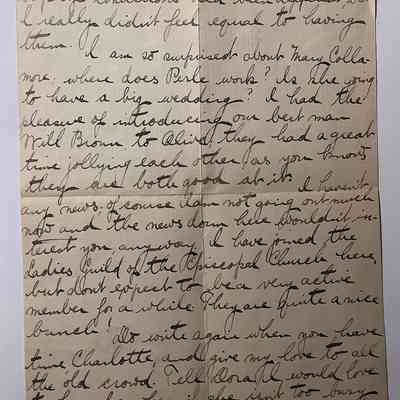 I really didn't feel equal to having
them. I am so surprised about Mary Colla-
more. where does Perle work? Is she going
to have a big wedding? I had the
pleasure of introducing our best man
Will Brown to Olive, they had a great
time jollying each other, as you know
they are both good at it.
I haven't
any news, of course I am not going out much
now and the news down here wouldn't in-
terest you anyway. I have joined the
Ladies Guild of the Episcopal Church here,
but dont expect to be a very active
member for a while. They are quite a nice
bunch!
Do write again when you have
time, Charlotte, and give my love to all
the old crowd. Tell Dora I would love
to if she isn't too busy